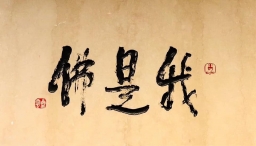 我是佛